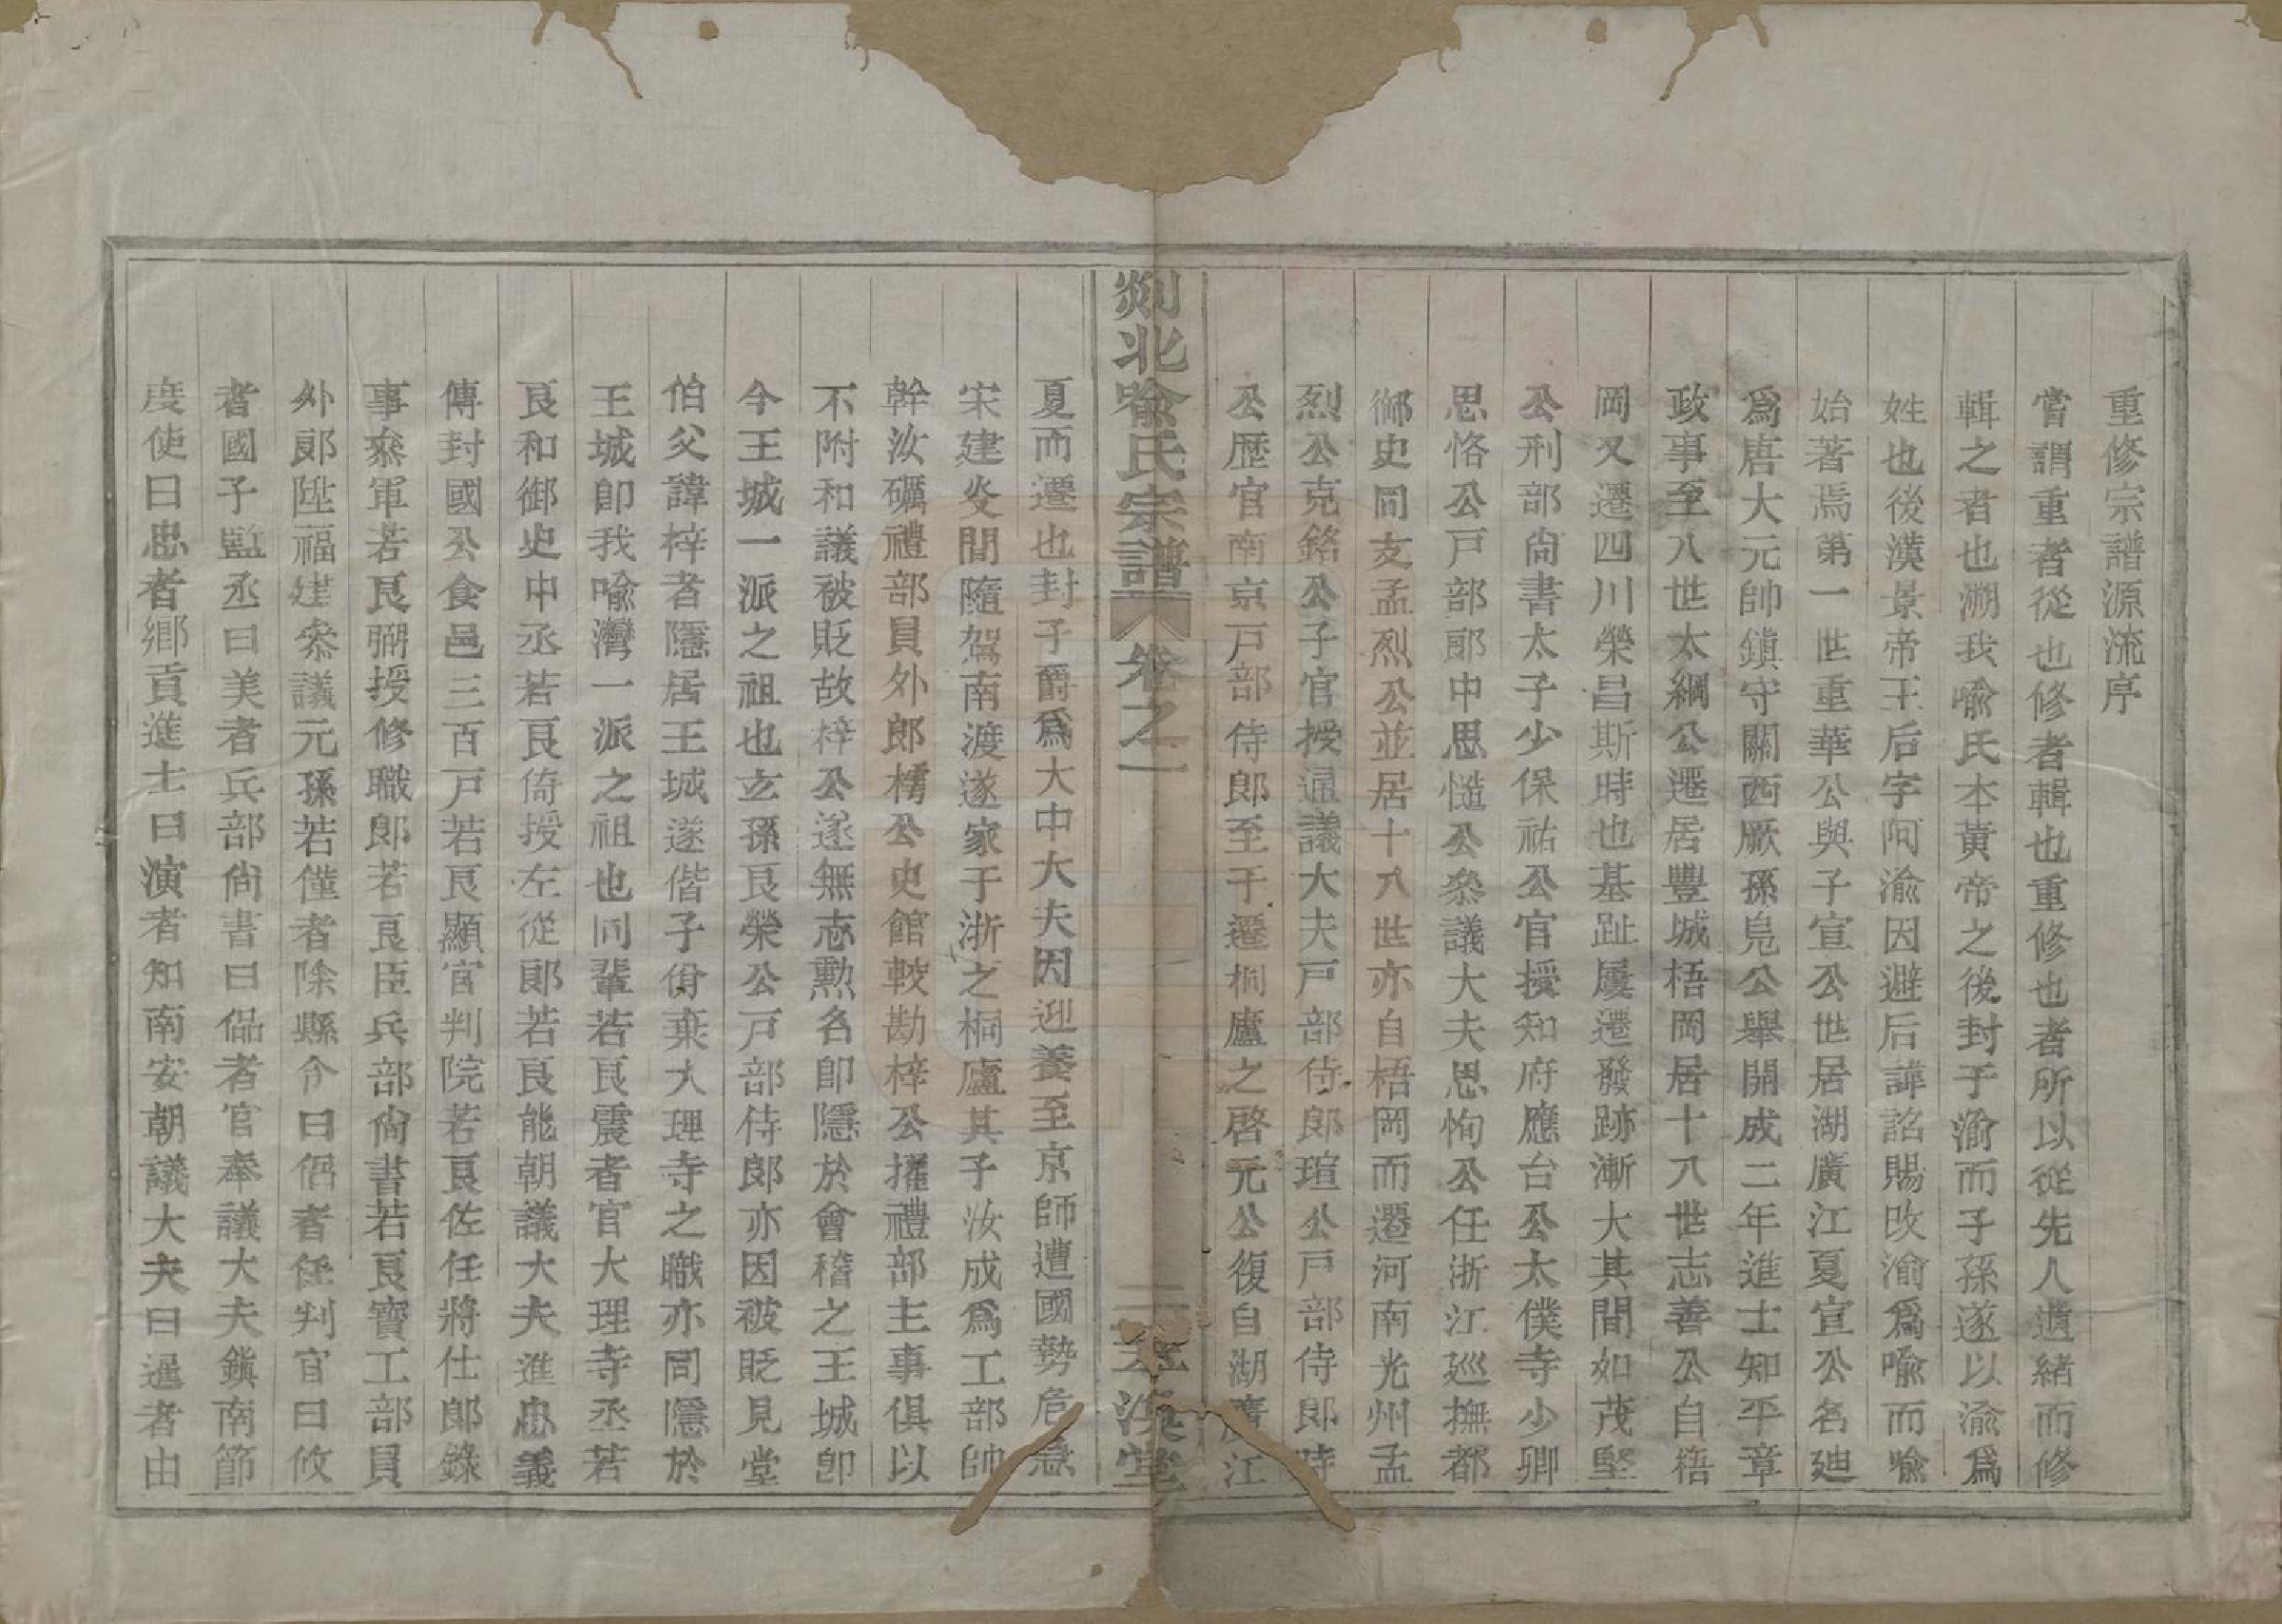 重修宗譜源流序
嘗謂重者從也修者輯也重修也者所以從先人遺緒而修
輯之者也溯我喩氏本黃帝之後封于渝而子孫遂以渝爲
姓也後漢景帝王后字阿渝因避后諱詔賜改渝爲喩而喩
始著焉第一世重華公與子宣公世居湖廣江夏宣公名廸
爲唐大元帥鎮守關西厥孫凫公舉開成二年進士知平章
政事至八世太綱公遷居豐城梧岡居十八世志善公自梧
岡又遷四川榮昌斯時也基趾屢遷發跡漸大其間如茂堅
公刑部尙書太子少保祐公官授知府應台公太僕寺少卿
思恪公戸部郎中思慥公叅議大夫思恂公任浙江廵撫都
御史同支孟烈公並居十八世亦自梧岡而遷河南光州孟
烈公克銘公子官授通議大夫戸部侍郎瑄公戸部侍郎時
公歷官南京戸部侍郎至于遷桐廬之啓元公復自湖廣江
剡北喩氏宗譜 卷之一 二 漠堂
夏而遷也封子爵爲大中大夫因迎養至京師遭國勢危急
宋建炎間隨駕南渡遂家于浙之桐廬其子汝成爲工部帥
幹汝礪禮部員外郎樗公史館較勘梓公擢禮部主事俱以
不附和議被貶故梓公遂無志勲名卽隱於會稽之王城卽
今王城一派之祖也玄孫良榮公戸部侍郎亦因被貶見堂
伯父諱梓者隱居王城遂偕子佾棄大理寺之職亦同隱於
王城卽我喩灣一派之祖也同輩若良震者官大理寺丞若
良和御史中丞若良倚授左從郎若良能朝議大夫進忠義
傳封國公食邑三百戸若良顯官判院若良佐任將仕郎錄
事叅軍若良弼授修職郎若良臣兵部尙書若良寶工部員
外郎陞福建叅議元孫若僅者除縣令曰侶者任判官曰攸
者國子監丞曰美者兵部尙書曰偘者官奉議大夫鎭南節
度使曰忠者鄉貢進士曰演者知南安朝議大夫曰暹者由